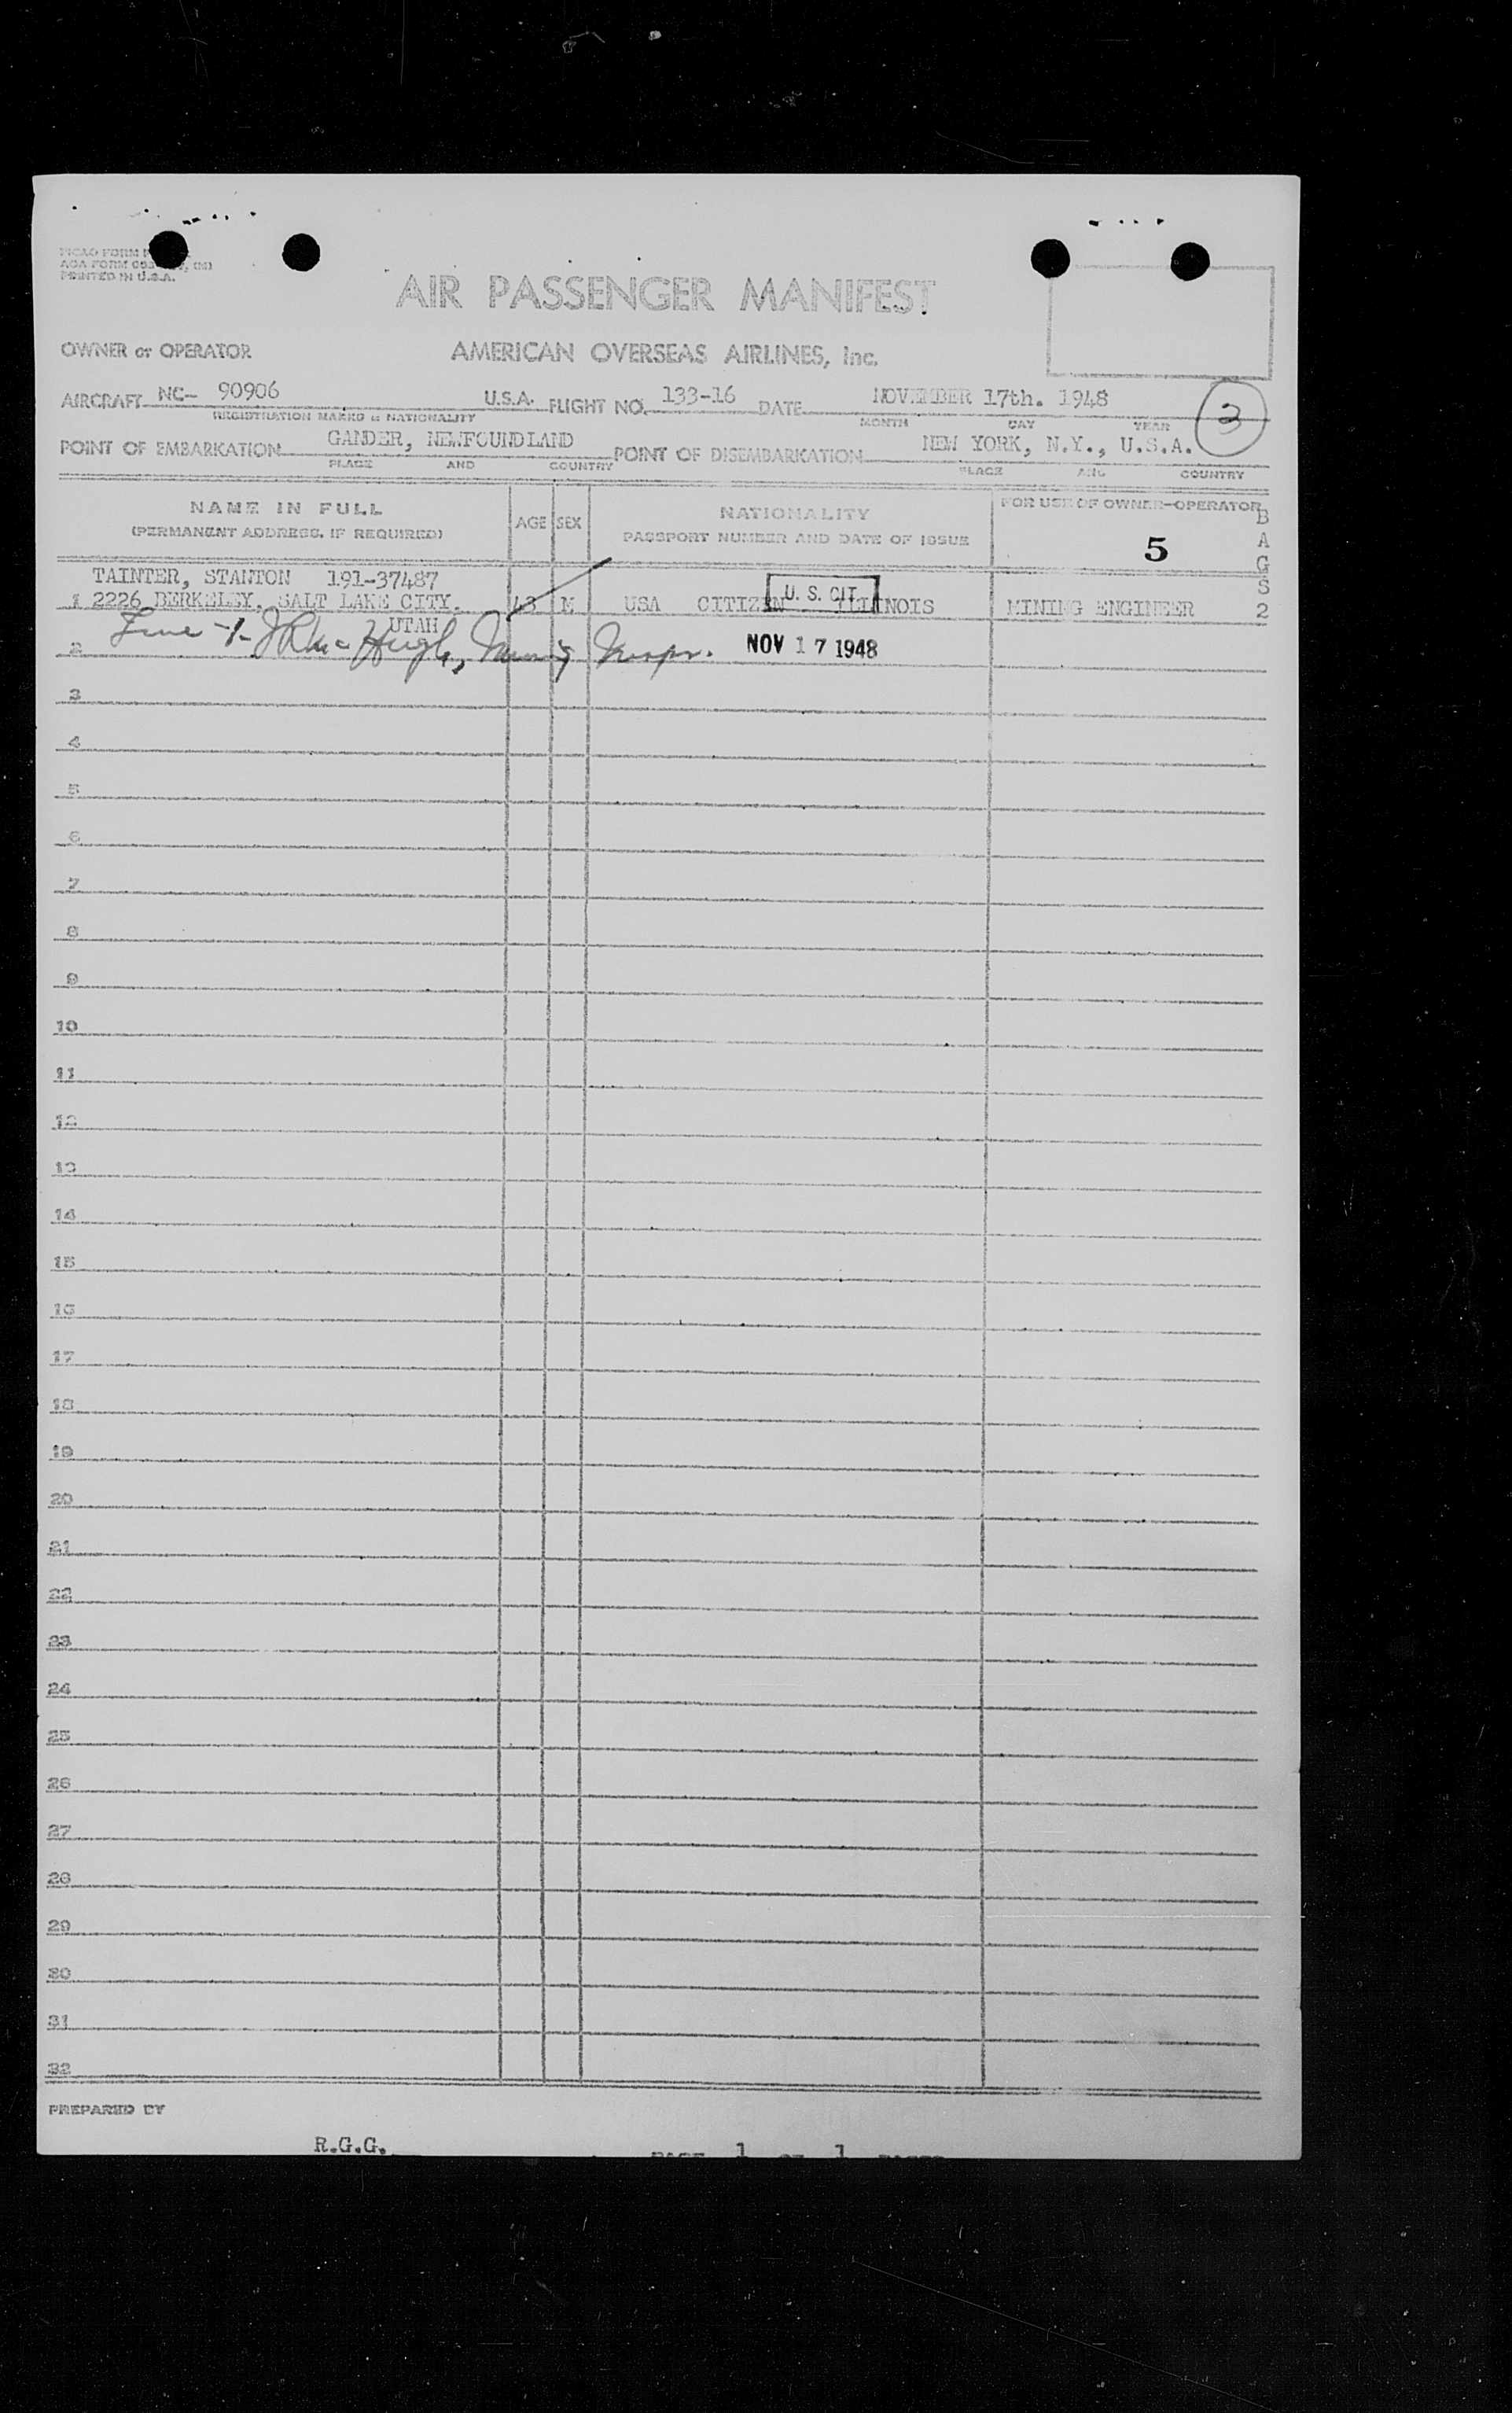 AIR PASSENGER MANIFEST
PRINTED IN U.S.A.
OWNER or OPERATOR AMERICAN OVERSEAS AIRLINES, Inc.
AIRCRAFT NC- 90906 U.S.A. FLIGHT NO. 133-16 DATE NOVEMBER 17th. 1948
REGISTRATION MARKS & NATIONALITY MONTH DAY YEAR
POINT OF EMBARKATION GANDER, NEWFOUNDLAND POINT OF DISEMBARKATION NEW YORK, N.Y., U.S.A.
PLACE AND COUNTRY PLACE AND COUNTRY
NAME IN FULL AGE SEX NATIONALITY FOR USE OF OWNER-OPERATOR
(PERMANENT ADDRESS, IF REQUIRED) PASSPORT NUMBER AND DATE OF ISSUE 5 BAGS
TAINTER, STANTON 191-37487 U. S. CIT.
1 2226 BERKELEY, SALT LAKE CITY. 43 M USA CITIZEN ILLINOIS MINING ENGINEER 2
UTAH
2 Line 1- McHugh, NOV 17 1948
3
4
5
6
7
8
9
10
11
12
13
14
15
16
17
18
19
20
21
22
23
24
25
26
27
28
29
30
31
32
PREPARED BY
R.G.G. PAGE 1 OF 1 PAGES